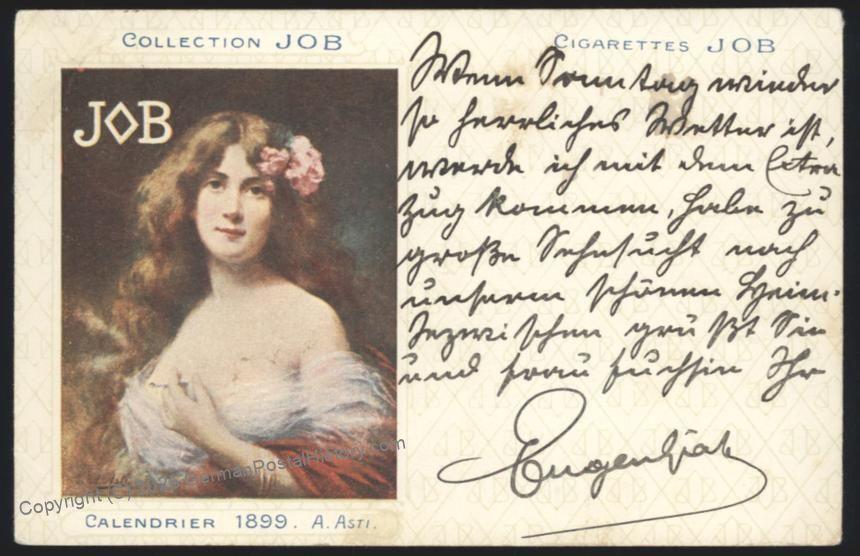 COLLECTION JOB
CIGARETTES JOB
JOB
Wenn Sonntag wieder
so herrliches Wetter ist,
werde ich mit dem Extra
zug kommen, habe zu
große Sehnsucht nach
unserm schönen Heim.
Inzwischen grüßt Sie
und Frau Fuchsin Ihr
Copyright (C) GermanPostalHistory.com
CALENDRIER 1899. A. ASTI.